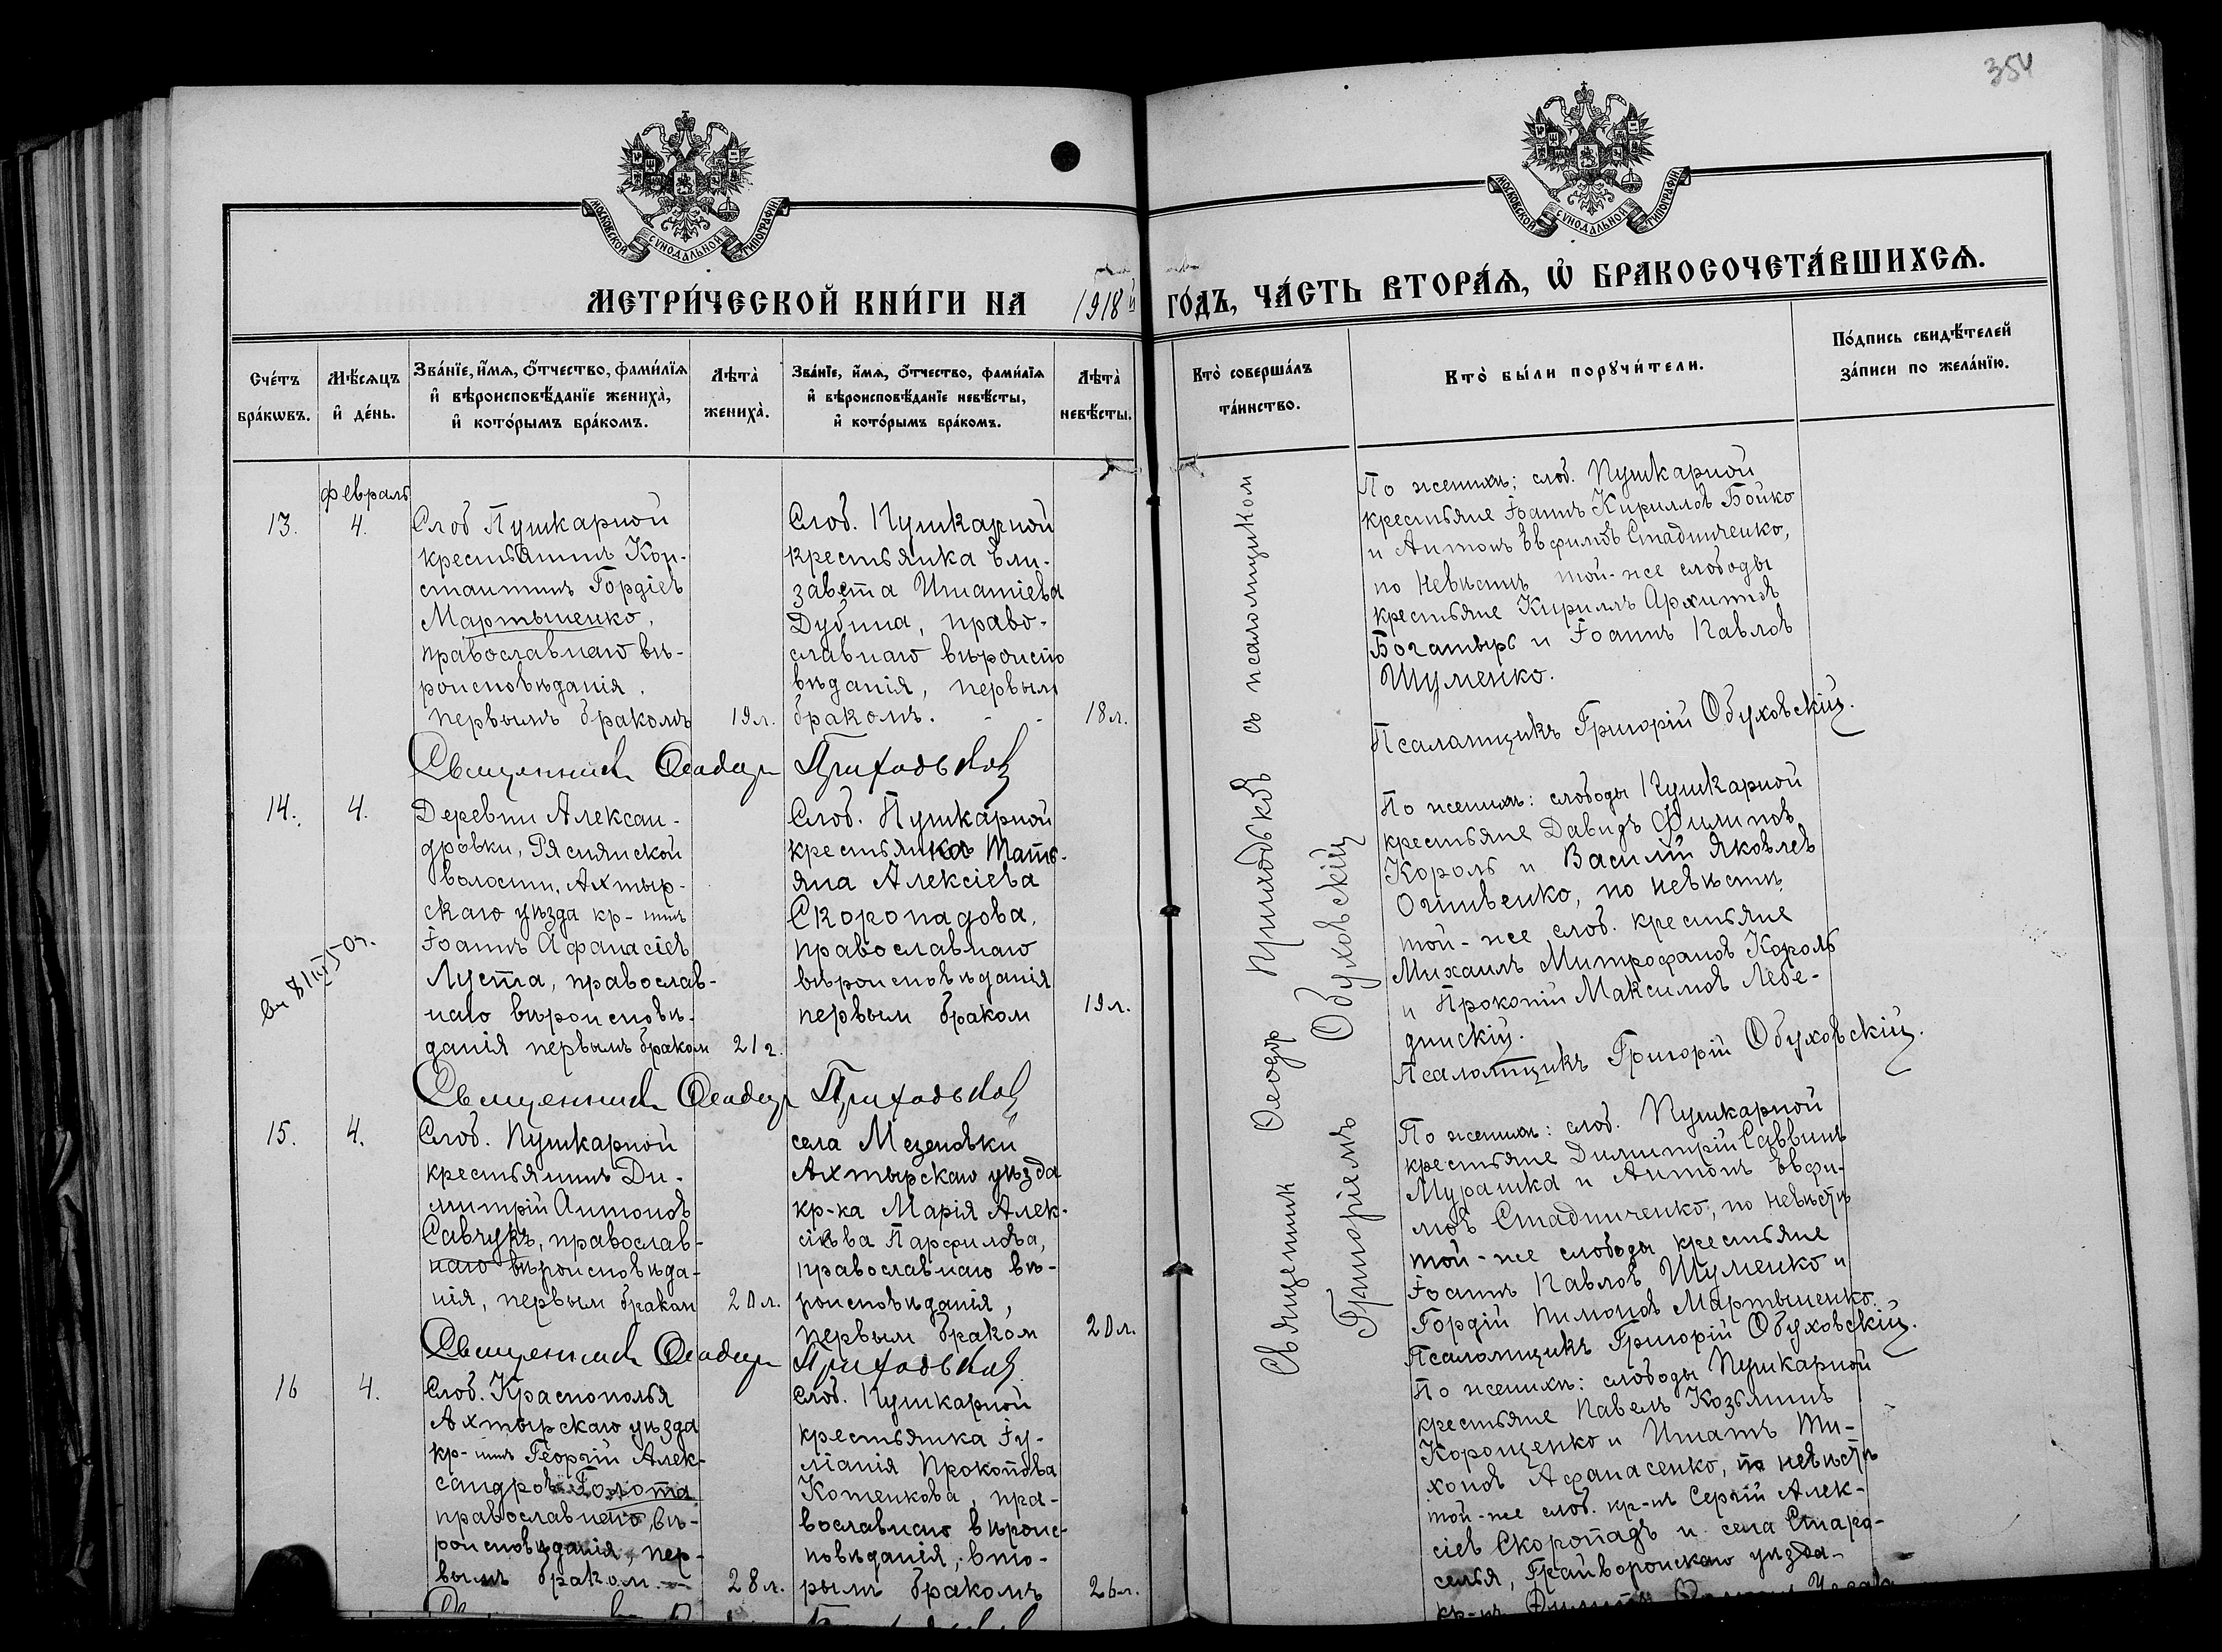 354
МОСКОВСКОЙ СѴНОДАЛЬНОЙ ТИПОГРАФІИ
МОСКОВСКОЙ СѴНОДАЛЬНОЙ ТИПОГРАФІИ
МЕТРИ́ЧЕСКОЙ КНИ́ГИ НА 1918 й ГО́ДЪ, ЧА́СТЬ ВТОРА́Ѧ, Ѽ БРАКОСОЧЕТА́ВШИХСѦ.
Сче́тъ бра́кѡвъ.
Мѣ́сѧцъ и҆ де́нь.
Зва́нїе, и҆́мѧ, ѻ҆́тчество, фами́лїѧ
и҆ вѣроисповѣ́данїе жениха̀,
и҆ кото́рымъ бра́комъ.
Лѣ́та̀ жениха̀.
Зва́нїе, и҆́мѧ, ѻ҆́тчество, фами́лїѧ
и҆ вѣроисповѣ́данїе невѣ́сты,
и҆ кото́рымъ бра́комъ.
Лѣ́та̀ невѣ́сты.
Кто̀ соверша́лъ
та́инство.
Кто̀ бы́ли порꙋчи́тели.
По́дпись свидѣ́телей
за́писи по жела́нїю.
февраль
13.
4.
Слоб Пушкарной
крестьянинъ Кон-
стантинъ Гордіевъ
Мартыненко,
православнаго вѣ-
роисповѣданія,
первымъ бракомъ
19 л.
Слоб. Пушкарной
крестьянка Ели-
завета Игнатіева
Дубина, право-
славнаго вѣроиспо
вѣданія, первым
бракомъ. - -
18 л.
По женихѣ; слоб. Пушкарной
крестьяне Іоаннъ Кирилловъ Бойко
и Антонъ Евфимовъ Стадниченко,
по невѣстѣ той-же слободы
крестьяне Кириллъ Архиповъ
Богатырь и Іоаннъ Павловъ
Шуменко.
Псаломщикъ Григорій Обуховскій.
Священникъ Ѳеодоръ Приходьковъ
14.
4.
Деревни Алексан-
дровки, Рясянской
волости, Ахтыр-
скаго уѣзда кр-нинъ
Іоаннъ Афанасіевъ
Луста, православ-
наго вѣроисповѣ-
данія первымъ браком
21 г.
Слоб. Пушкарной
крестьянка Тать-
яна Алексіева
Скоропадова,
православнаго
вѣроисповѣданія
первым браком
19 л.
По женихѣ: слободы Пушкарной
крестьяне Давидъ Филиповъ
Король и Василій Яковлев
Огнивенко, по невѣстѣ
той-же слоб. крестьяне
Михаилъ Митрофановъ Король
и Прокопій Максимовъ Лебе-
динскій.
Псаломщикъ Григорій Обуховскій.
Священникъ Ѳеодоръ Приходьковъ
15.
4.
Слоб. Пушкарной
крестьянинъ Ди-
митрій Антоновъ
Савчукъ, православ-
наго вѣроисповѣда-
нія, первым браком
20 л.
села Мезеновки
Ахтырскаго уѣзда
кр-ка Марія Алек-
сіева Парфилова,
православнаго вѣ-
роисповѣданія,
первым браком
20 л.
По женихѣ: слоб. Пушкарной
крестьяне Димитрій Саввинъ
Мурашка и Антонъ Евфи-
мовъ Стадниченко, по невѣстѣ
той-же слободы крестьяне
Іоаннъ Павловъ Шуменко и
Гордій Пимоновъ Мартыненко.
Псаломщикъ Григорій Обуховскій.
Священникъ Ѳеодоръ Приходьковъ
16
4.
Слоб. Краснополья
Ахтырскаго уѣзда
кр-нинъ Георгій Алек-
сандровъ Голота
православнаго вѣ-
роисповѣданія, пер-
вымъ браком
28 л.
Слоб. Пушкарной
крестьянка Іу-
ліанія Прокопова
Котенкова, пра-
вославнаго вѣроис-
повѣданія, вто-
рымъ бракомъ
26 л.
По женихѣ: слободы Пушкарной
крестьяне Павелъ Козьминъ
Корощенко и Игнатъ Ти-
хоновъ Афанасенко, по невѣстѣ
той-же слоб. кр-нъ Сергій Алек-
сіев Скоропадъ и села Старо-
селья, Грайворонскаго уѣзда
кр-нъ
Священник Ѳеодор Приходьковъ съ псаломщиком
Григоріемъ Обуховскій